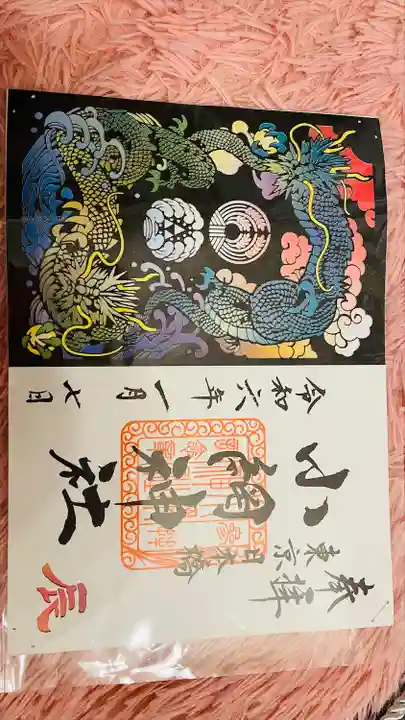 奉拝
東京日本橋
小網神社
令和六年一月七日
辰